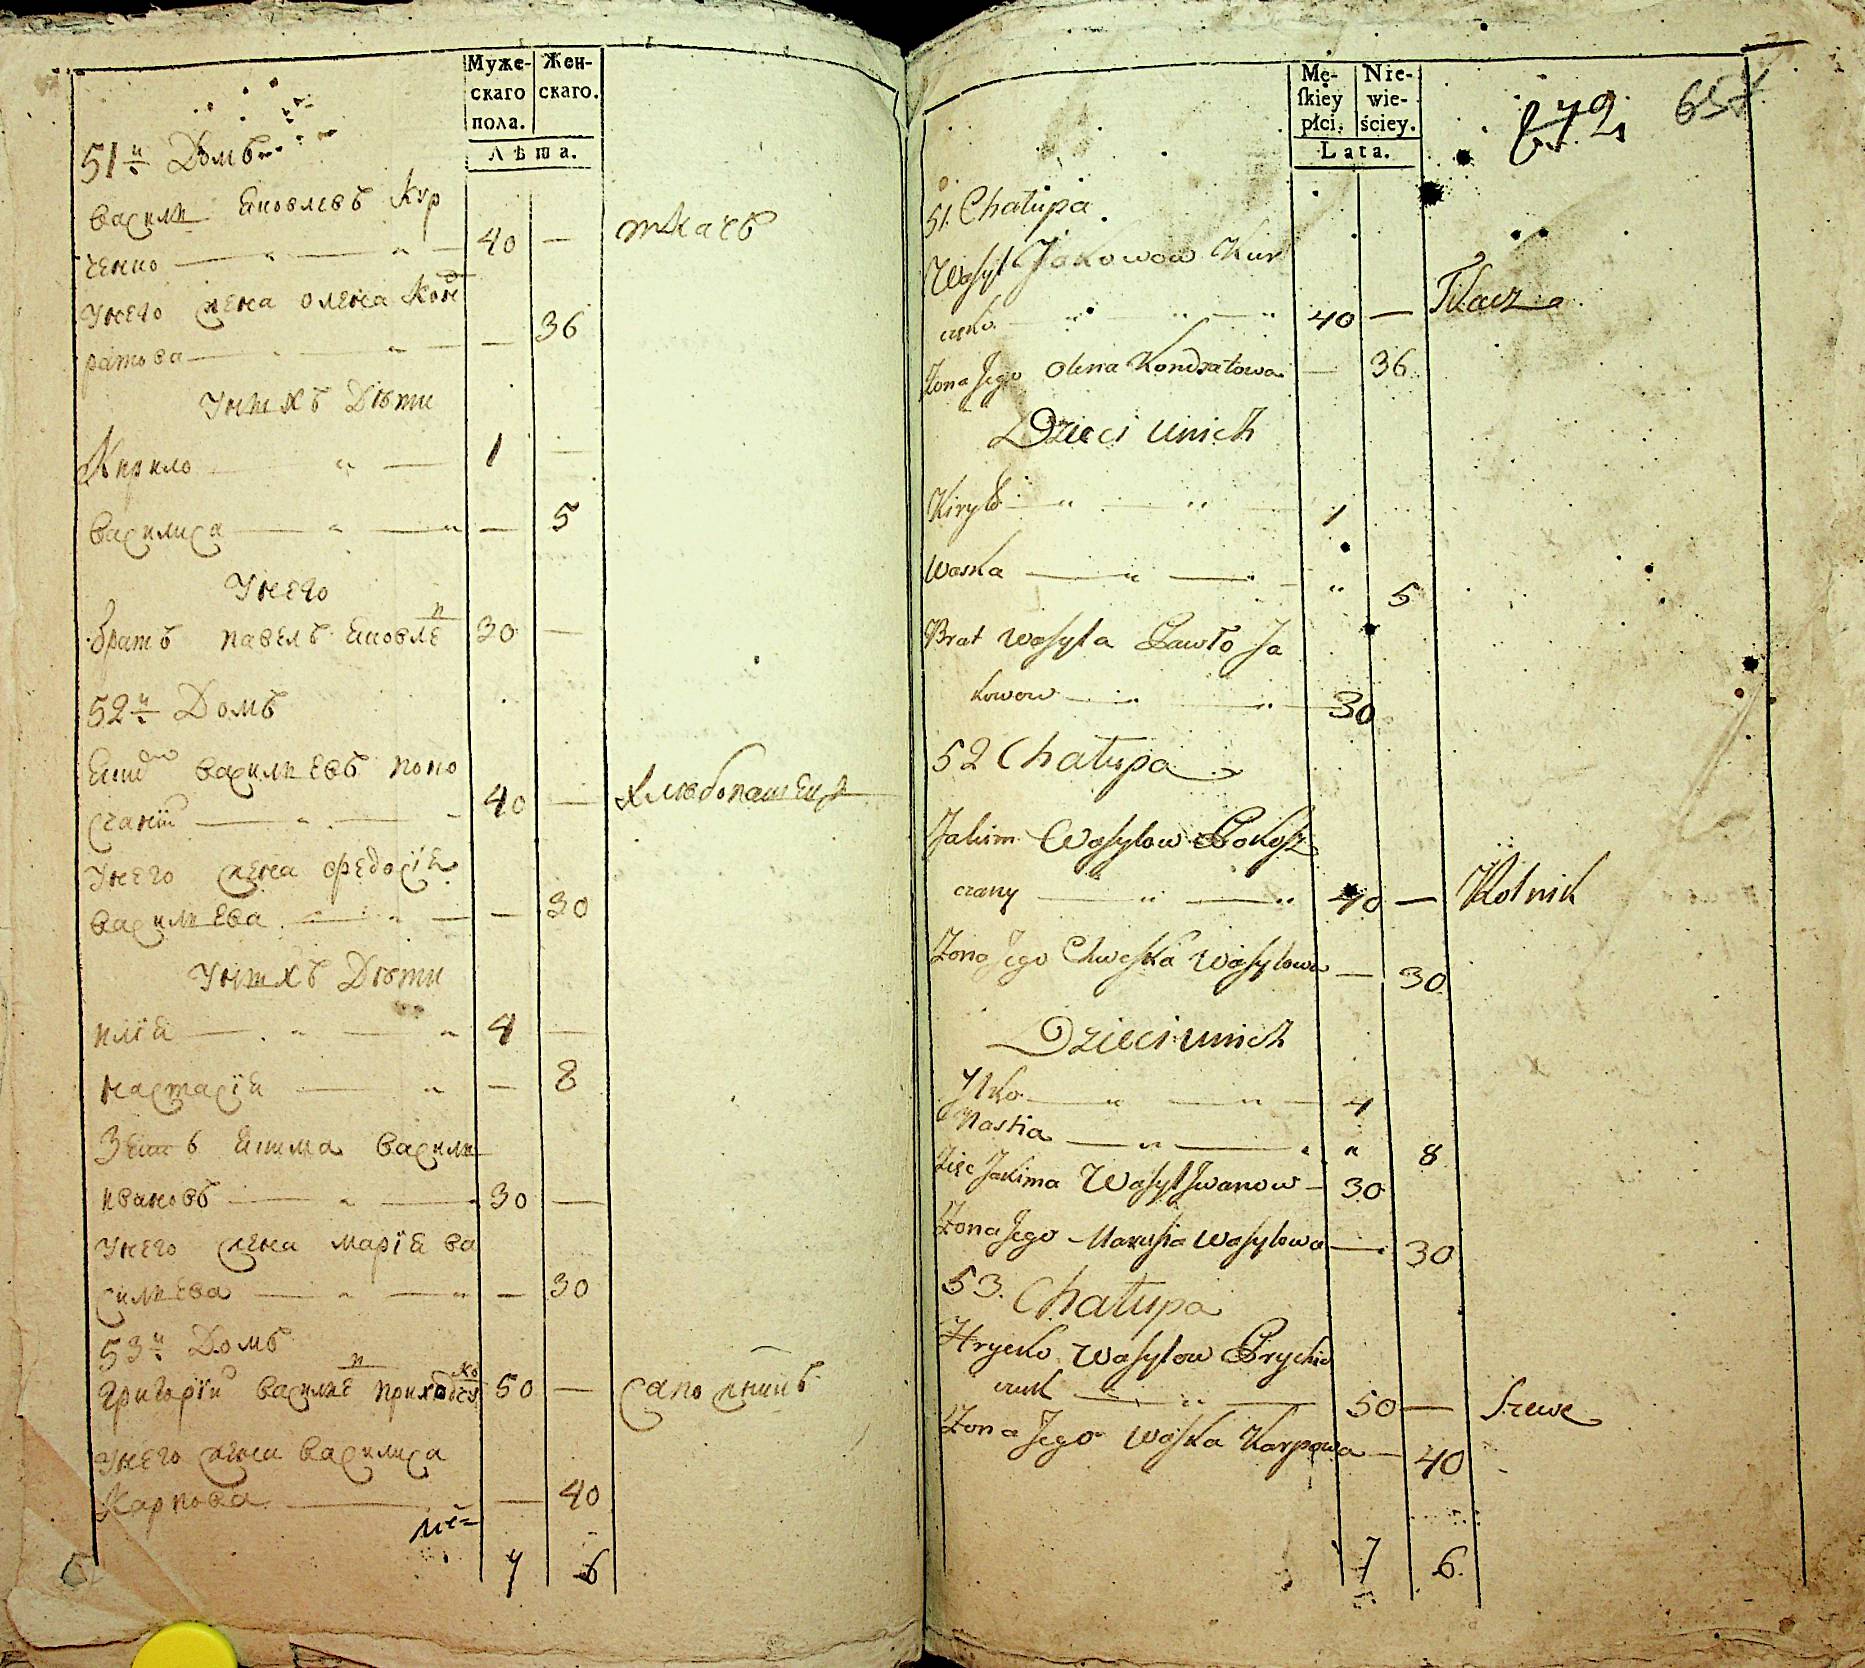 Муже-
скаго
пола.
Жен-
скаго.
Лѣта.
51й Домъ
Васили Яковлевъ Кур
ченко 40 — ткачъ
Унего жена Олена Кон
ратова — 36
Унихъ Дѣти
Кирило 1 —
Василиса — 5
Унего
братъ Павелъ Яковле 30 —
52й Домъ
Яким Василиевъ Поко
счаний 40 — хлебопашец
Унего жена Федосія
Василиева — 30
Унихъ Дѣти
Илія 4 —
Настасія — 8
Зеть Якима Васили
Ивановъ 30 —
Унего жена Марія Ва
силиева — 30
53й Домъ
Григорій Василие Приходко 50 — сапожникъ
Унего жена Василиса
Карпова — 40
7 6
Mę-
ſkiey
płci.
Nie-
wie-
ściey.
Lata.
672
657
51. Chałupa
Wasyl Jakowow Kur
czenko 40 — Tkacz
Żona Jego Olena Kondratowa — 36
Dzieci unich
Kiryło 1
Waska " 5
Brat Wasyla Pawło Ja
kowow 30
52 Chałupa
Jakim Wasylow Pokosz
czany 40 — Rolnik
Żona Jego Chweska Wasylowa — 30
Dzieci unich
Ilko 4
Nastia " 8
Zięc Jakima Wasyl Iwanow 30
Żona Jego Marusia Wasylowa — 30
53. Chałupa
Hrycko Wasylow Prychod
50 — Szewc
Żona Jego Waska Karpowa — 40
7 6